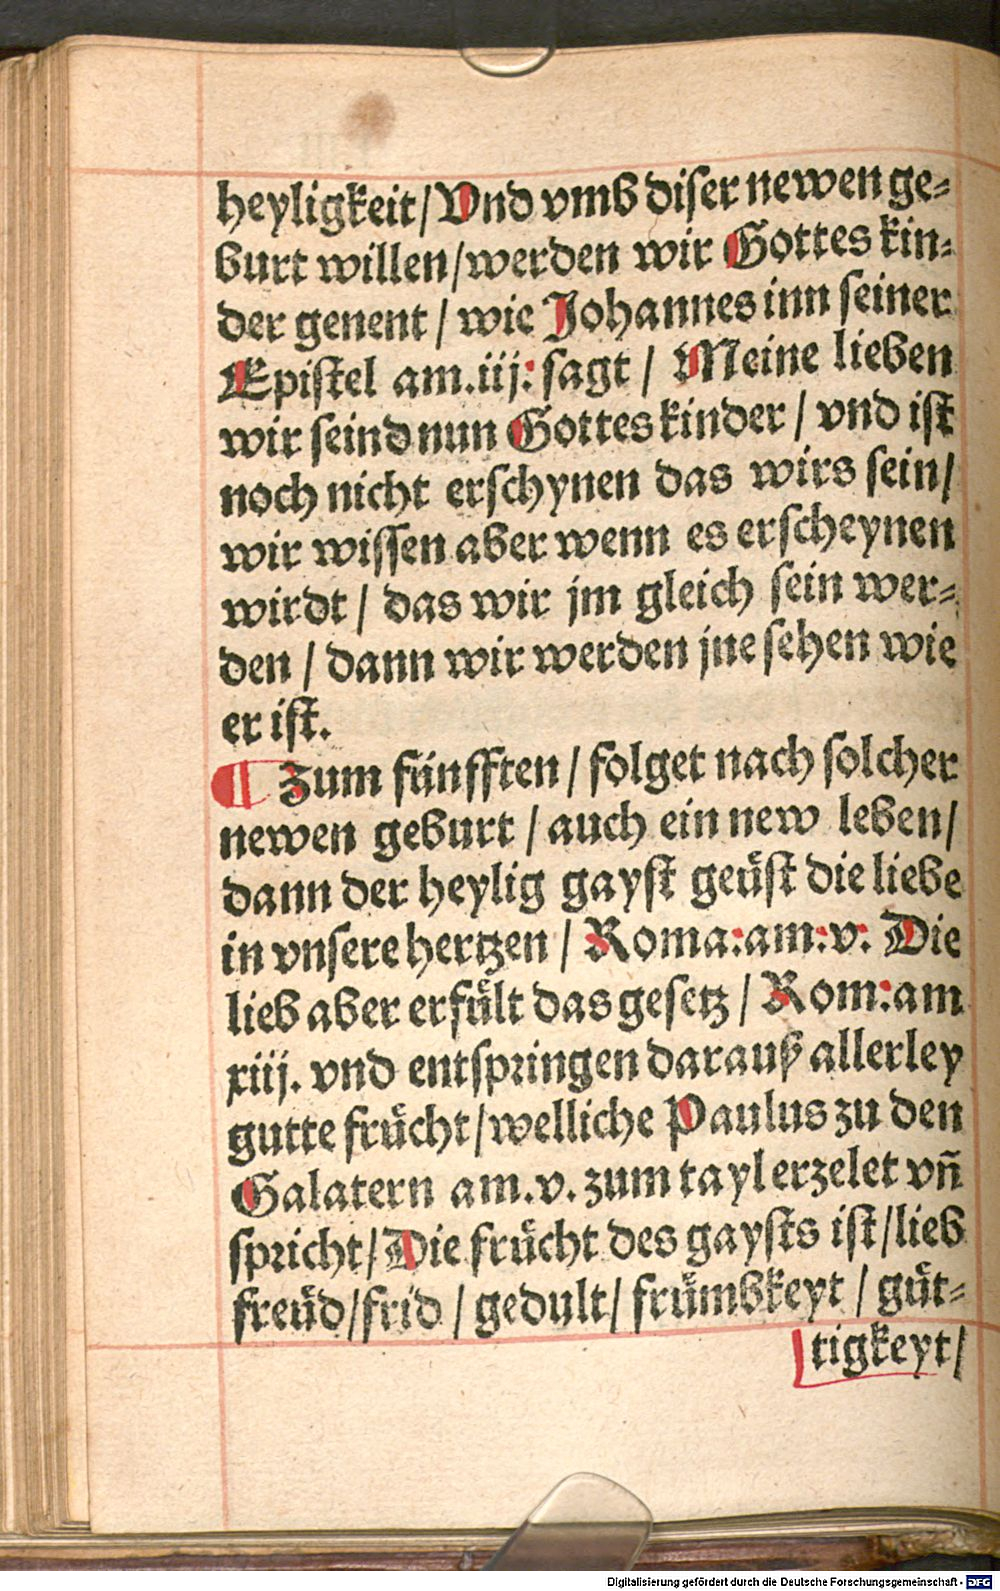 heyligkeit/Vnd vmb diser newen ge-
burt willen/werden wir Gottes kin-
der genent / wie Johannes inn seiner
Epistel am.iij: sagt / Meine lieben
wir seind nun Gottes kinder / vnd ist
noch nicht erschynen das wirs sein/
wir wissen aber wenn es erscheynen
wirdt / das wir jm gleich sein wer-
den / dann wir werden jne sehen wie
er ist.
¶ Zum fünfften / folget nach solcher
newen geburt / auch ein new leben/
dann der heylig gayst geüst die liebe
in vnsere hertzen / Roma:am:v: Die
lieb aber erfült das gesetz / Rom:am
xiij. vnd entspringen darauß allerley
gutte frücht/welliche Paulus zu den
Galatern am.v. zum tayl erzelet vñ
spricht/Die frücht des gaysts ist/lieb
freüd/frid / gedult/ frümbkeyt / güt-
tigkeyt/
Digitalisierung gefördert durch die Deutsche Forschungsgemeinschaft - DFG